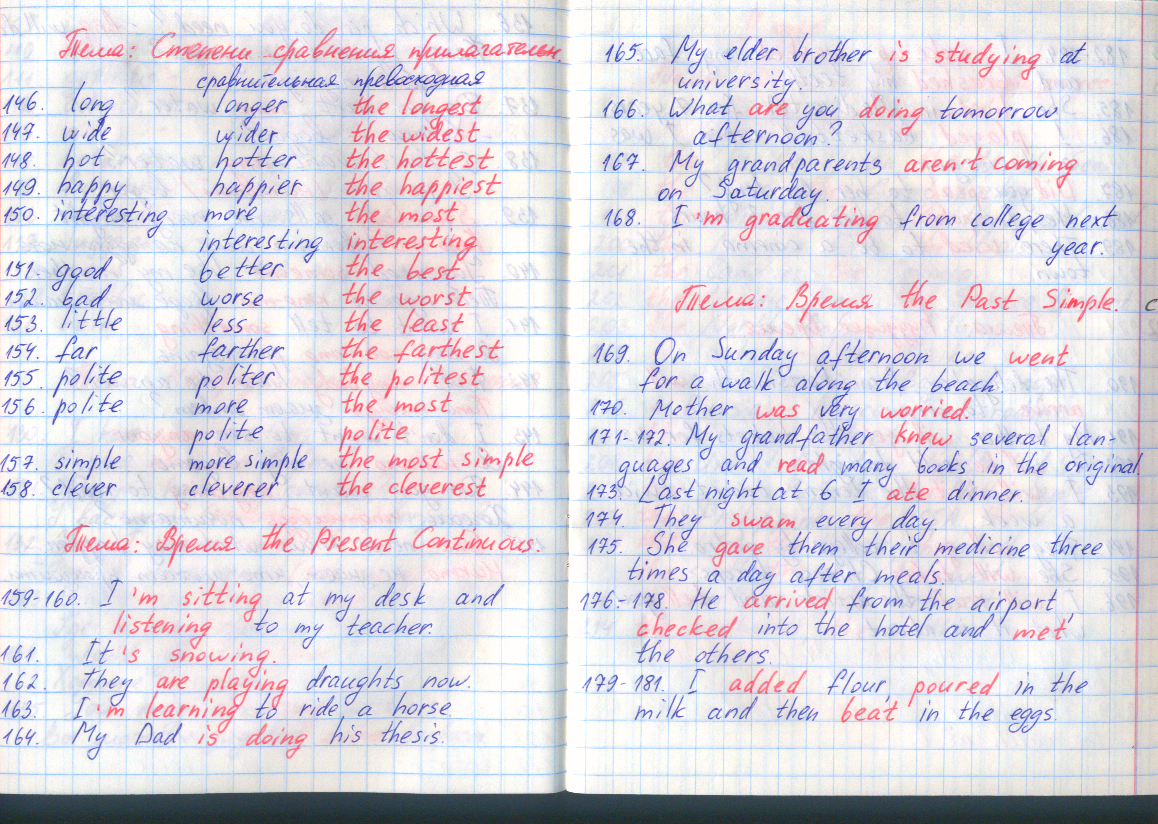 Тема: Степени сравнения прилагательн.
сравнительная превосходная
146. long longer the longest
147. wide wider the widest
148. hot hotter the hottest
149. happy happier the happiest
150. interesting more the most
interesting interesting
151. good better the best
152. bad worse the worst
153. little less the least
154. far farther the farthest
155. polite politer the politest
156. polite more the most
polite polite
157. simple more simple the most simple
158. clever cleverer the cleverest
Тема: Время the Present Continuous.
159-160. I 'm sitting at my desk and
listening to my teacher.
161. It 's snowing.
162. They are playing draughts now.
163. I 'm learning to ride a horse
164. My Dad is doing his thesis.
165. My elder brother is studying at
university.
166. What are you doing tomorrow
afternoon?
167. My grandparents aren't coming
on Saturday.
168. I 'm graduating from college next
year.
Тема: Время the Past Simple.
169. On Sunday afternoon we went
for a walk along the beach.
170. Mother was very worried.
171-172. My grandfather knew several lan-
guages and read many books in the original.
173. Last night at 6 I ate dinner.
174. They swam every day.
175. She gave them their medicine three
times a day after meals.
176-178. He arrived from the airport,
checked into the hotel and met
the others.
179-181. I added flour, poured in the
milk and then beat in the eggs.